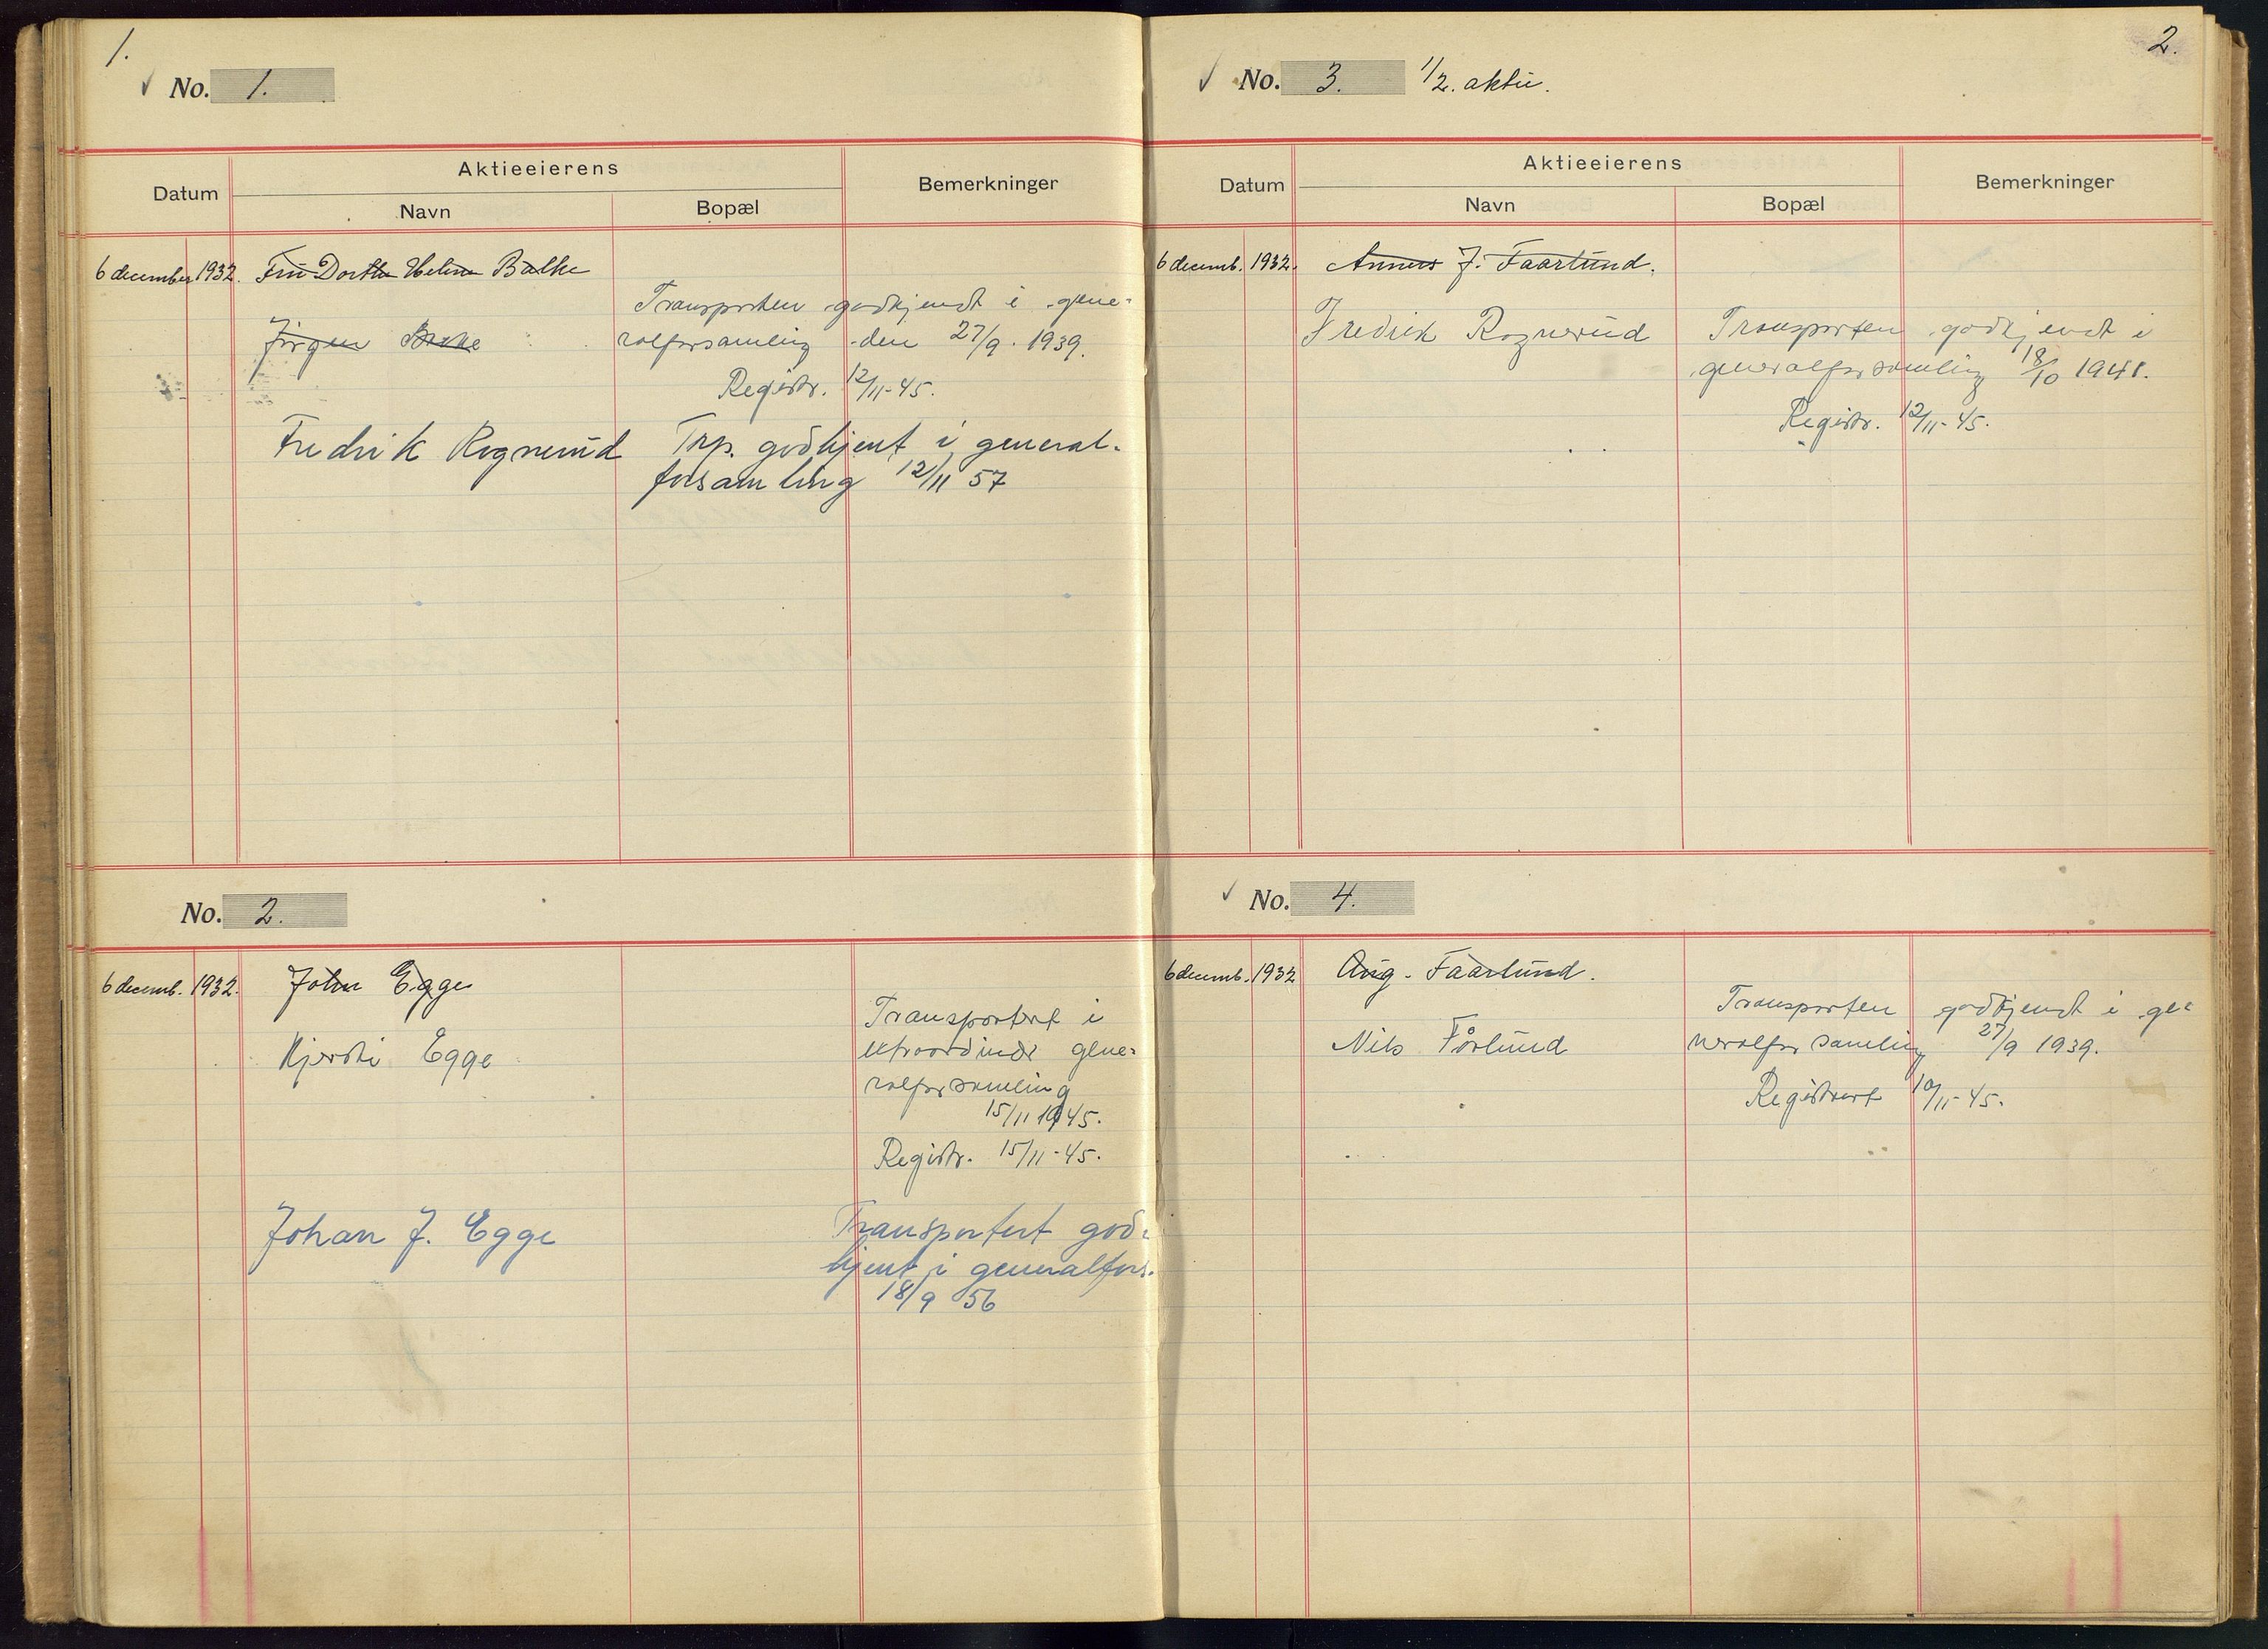 1.
No. 1.
Datum
Aktieeierens
Navn
Bopæl
Bemerkninger
6 december 1932. Fru Dorthe Helene Balke
Transporten godkjendt i gene-
Jörgen Balke
ralforsamling den 27/9. 1939.
Registr. 12/11-45.
Fredrik Rognerud Trp. godkjent i general-
forsamling 12/11 57
No. 2.
6 decemb. 1932. John Egge
Transportert i
Kjersti Egge
extraordinær gene-
ralforsamling
15/11 1945.
Registr. 15/11-45.
Johan J. Egge
Transportert god-
kjent i generalfors.
18/9 56
2.
No. 3. 1/2. aktie.
Datum
Aktieeierens
Navn
Bopæl
Bemerkninger
6 decemb. 1932. J. Faarlund.
Fredrik Rognerud Transporten godkjendt i
generalforsamling 18/10 1941.
Registr. 12/11-45.
No. 4.
6 decemb. 1932 Aug. Faarlund.
Transporten godkjendt i ge-
Nils Fårlund neralforsamling 27/9 1939.
Registrert 12/11-45.